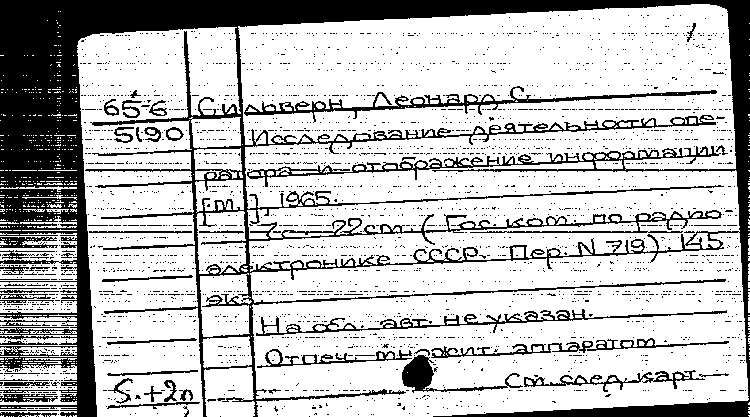 1
65-6 Сильверн, Леонард С.
5190 Исследование деятельности опе-
ратора и отображение информации.
[М.], 1965.
7с. 22см. (Гос. ком. по радио-
электронике СССР. Пер. N 719). 145
экз.
На обл. авт. не указан.
Отпеч. множит. аппаратом.
См. след. карт.